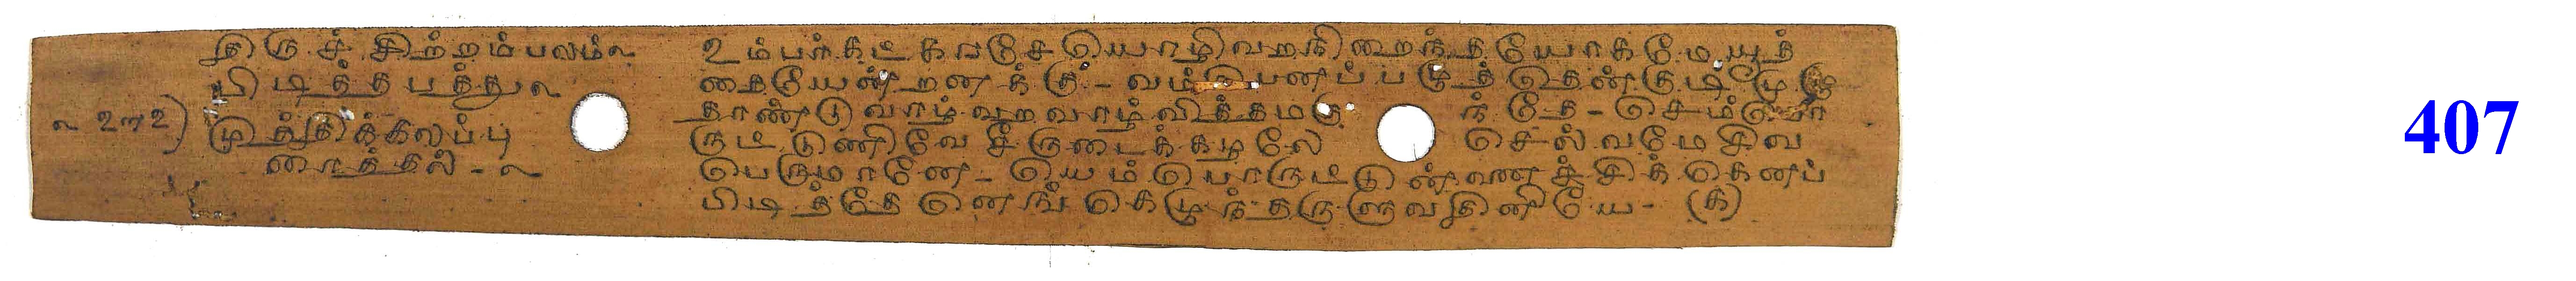 திருச்சிற்றம்பலம்
பிடித்தபத்து
முத்திக்கலப்பு
ரைத்தல் -
உம்பர்கட்கரசே யொழிவறநிறைந்தயோகமேயூத்
தையேன்றனக்கு - வம்பெனப்பழுத்தென்குடிமுழு
தாண்டுவாழ்வறவாழ்வித்தமரு ந்தே - செம்பொ
ருட்டுணிவே சீருடைக்கழலே செல்வமே சிவ
பெருமானே - யெம்பொருட்டுன்னைச்சிக்கெனப்
பிடித்தேனெங்கெழுந்தருளுவதினியே - (க)
407